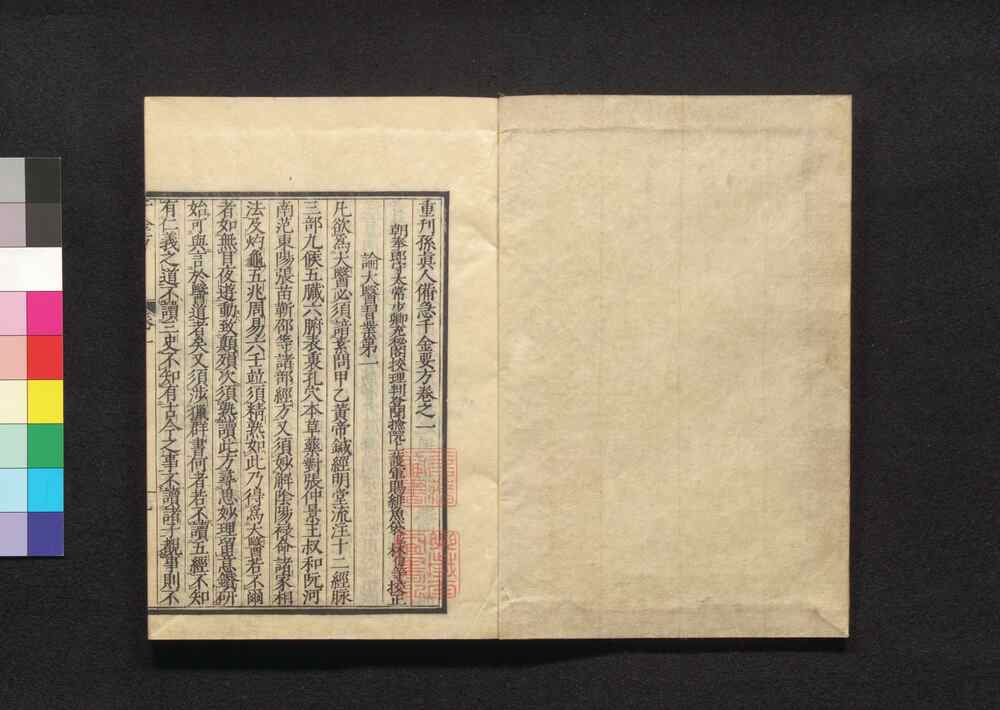 重刊孫真人備急千金要方卷之一
朝奉郎守太常少卿充秘閣校理判登聞檢院上護軍賜緋魚袋臣林億等校正
論大醫習業第一
凡欲為大醫必須諳素問甲乙黃帝鍼經明堂流注十二經脉
三部九候五臟六腑表裏孔穴本草藥對張仲景王叔和阮河
南范東陽張苗靳邵等諸部經方又須妙解陰陽祿命諸家相
法及灼龜五兆周易六壬並須精熟如此乃得為大醫若不爾
者如無目夜遊動致顛殞次須熟讀此方尋思妙理留意鑽研
始可與言於醫道者矣又須涉獵群書何者若不讀五經不知
有仁義之道不讀三史不知有古今之事不讀諸子覩事則不